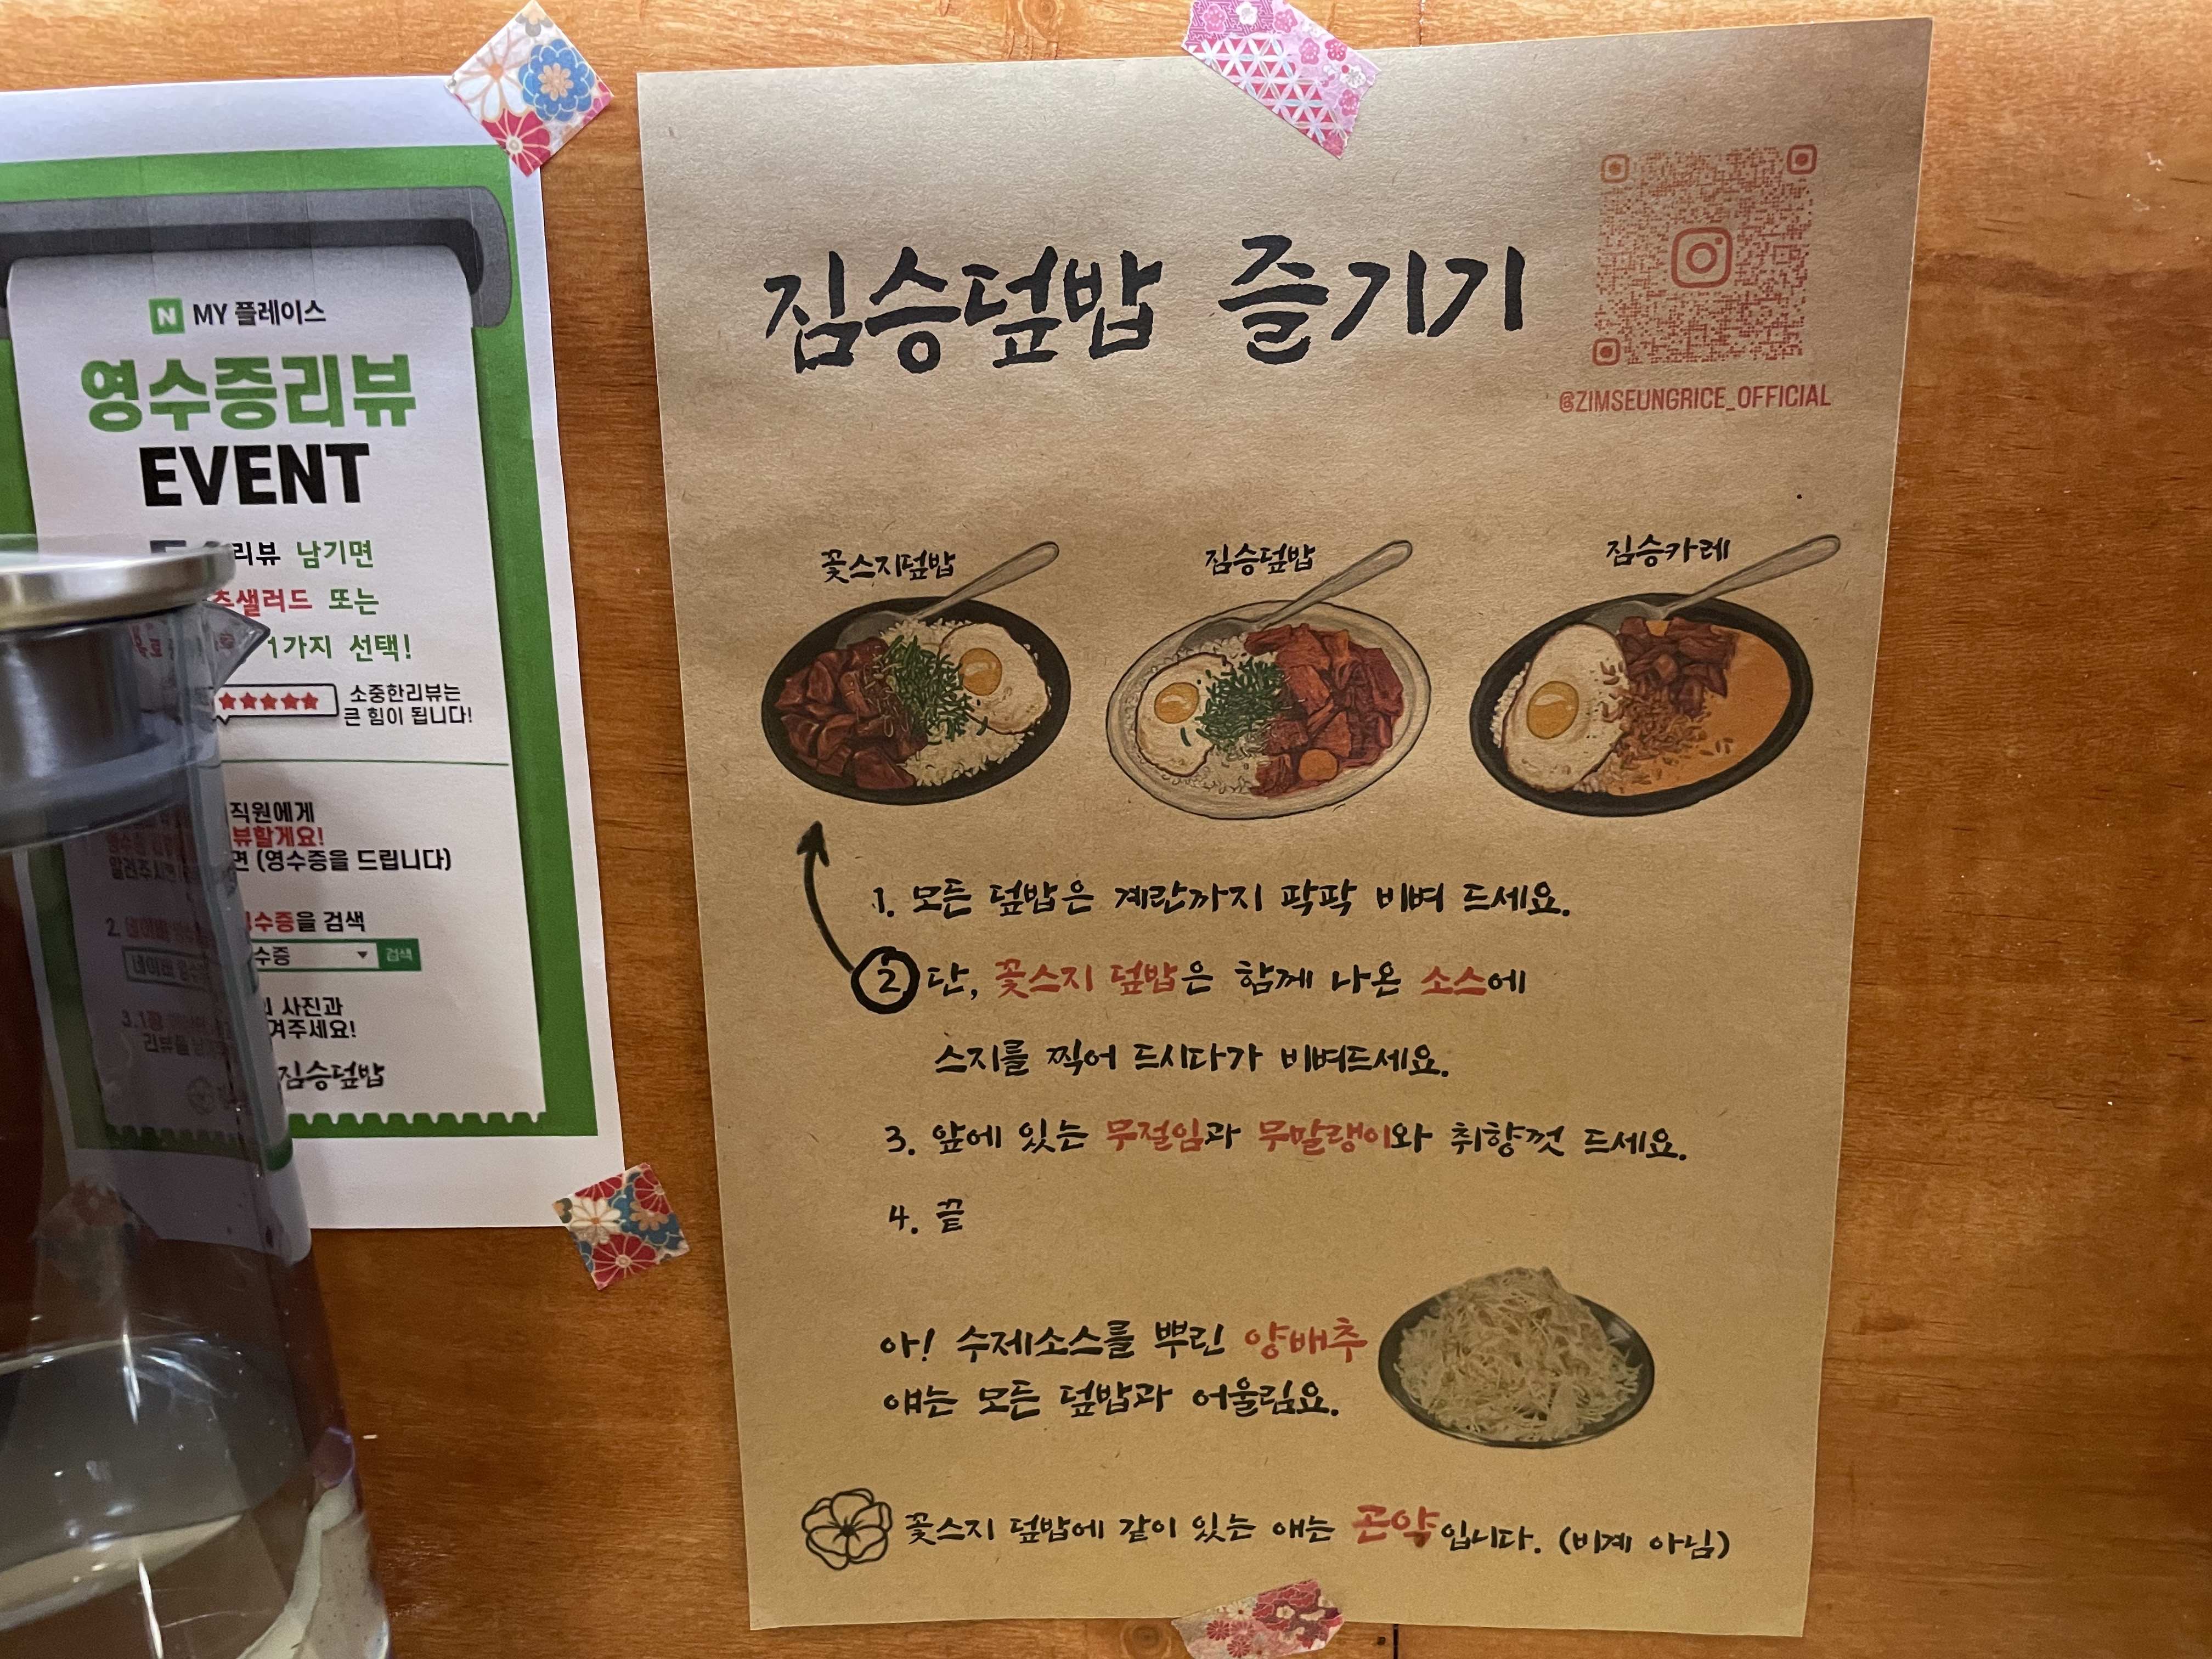 N MY 플레이스
영수증리뷰
EVENT
리뷰 남기면
샐러드 또는
1가지 선택!
소중한리뷰는
큰 힘이 됩니다!
직원에게
뷰할게요!
면 (영수증을 드립니다)
2. 영수증을 검색
수증 검색
3. 사진과
겨주세요!
짐승덮밥
짐승덮밥 즐기기
@ZIMSEUNGRICE_OFFICIAL
꽃스지덮밥
짐승덮밥
짐승카레
1. 모든 덮밥은 계란까지 팍팍 비벼 드세요.
2. 단, 꽃스지 덮밥은 함께 나온 소스에
스지를 찍어 드시다가 비벼드세요.
3. 앞에 있는 무절임과 무말랭이와 취향껏 드세요.
4. 끝
아! 수제소스를 뿌린 양배추
얘는 모든 덮밥과 어울림요.
꽃스지 덮밥에 같이 있는 얘는 곤약입니다. (비계 아님)